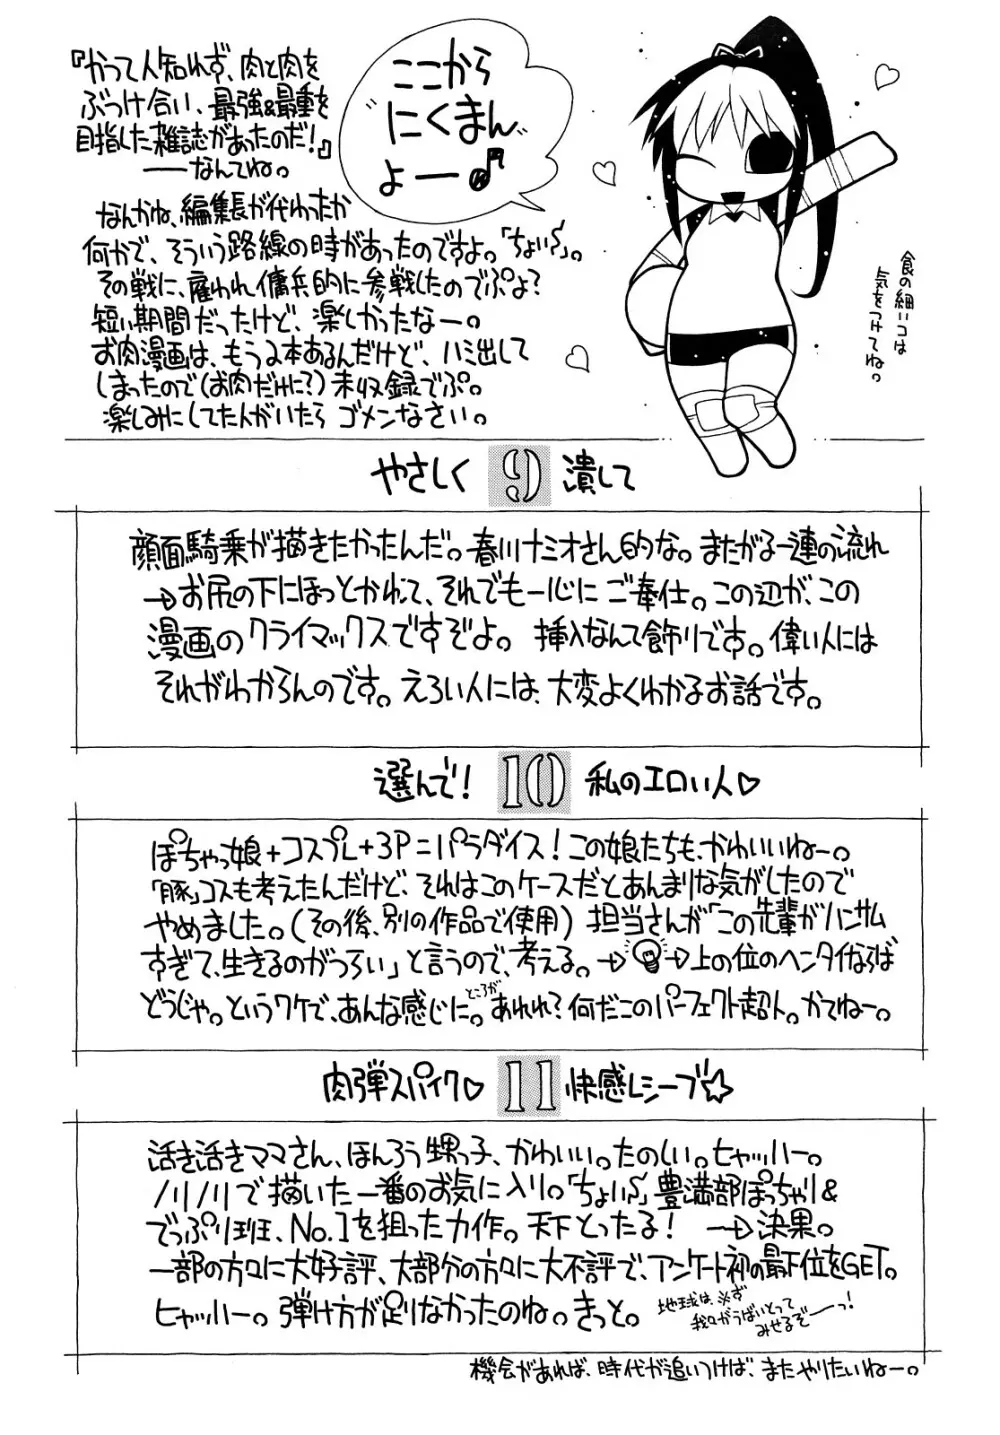 『かつて人知れず、肉と肉を
ぶつけ合い、最強&最重を
目指した雑誌があったのだ!』
——なんてね。
ここから
にくまん
よー♪
なんかね、編集長が代わったか
何かで、そういう路線の時があったのですよ。「ちょい〜」。
その戦に、雇われ傭兵的に参戦したのでぷよ?
短い期間だったけど、楽しかったなー。
お肉漫画は、もう2本あるんだけど、ハミ出して
しまったので(お肉だけに?)未収録でぷ。
楽しみにしてた人がいたら ゴメンなさい。
食の細いコは
気をつけてね。
やさしく 9 潰して
顔面騎乗が描きたかったんだ。春川ナミオさん的な。またがる一連の流れ
→お尻の下にほっとかれて、それでも一心に ご奉仕。この辺が、この
漫画のクライマックスですぞよ。 挿入なんて飾りです。偉い人には
それがわからんのです。えろい人には、大変よくわかるお話です。
選んで! 10 私のエロい人♡
ぽちゃっ娘+コスプレ+3P=パラダイス!この娘たちも、かわいいねー。
「豚」コスも考えたんだけど、それはこのケースだとあんまりな気がしたので
やめました。(その後、別の作品で使用) 担当さんが「この先輩がハンサム
すぎて、生きるのがつらい」と言うので、考える。→ →上の位のヘンタイならば
どうじゃ。というワケで、あんな感じに。ところがあれれ?何だこのパーフェクト超人。かてねー。
肉弾スパイク♡ 11 快感レシーブ☆
活き活きママさん、ほんろう甥っ子、かわいい。たのしい。ヒャッハー。
ノリノリで描いた一番のお気に入り。「ちょい〜」豊満部ぽっちゃり&
でっぷり班、No.1を狙った力作。天下とったる! →決果。
一部の方々に大好評、大部分の方々に大不評で、アンケート初の最下位をGET。
ヒャッハー。弾け方が足りなかったのね。きっと。
地球は、必ず
我々がうばいとって
みせるぞーっ!
機会があれば、時代が追いつけば、またやりたいねー。